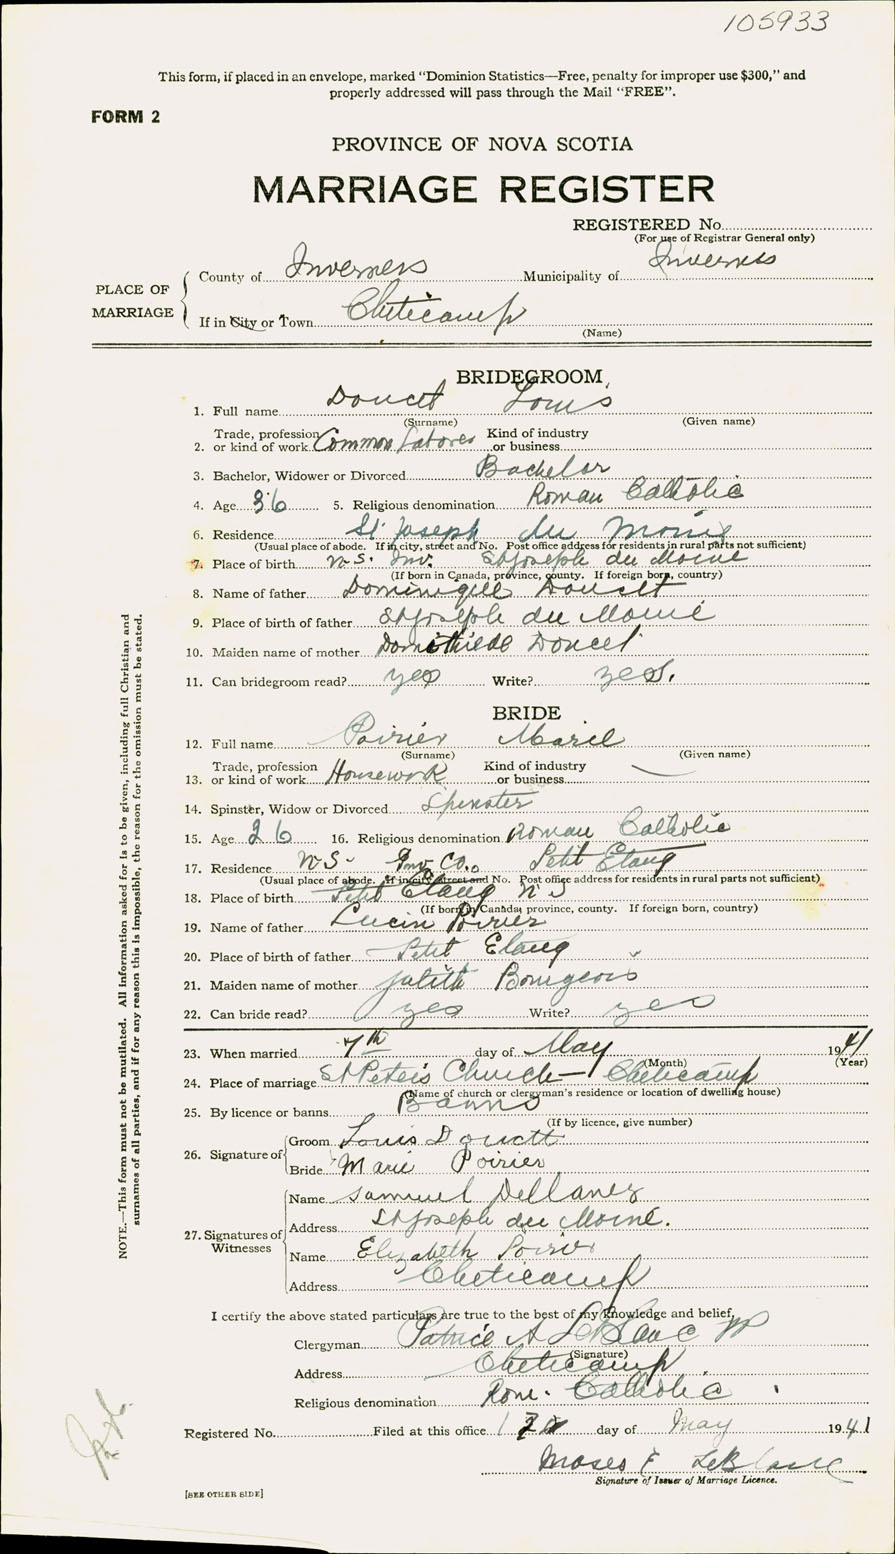 105933
This form, if placed in an envelope, marked “Dominion Statistics—Free, penalty for improper use $300,” and
properly addressed will pass through the Mail “FREE”.
FORM 2
PROVINCE OF NOVA SCOTIA
MARRIAGE REGISTER
REGISTERED No.
(For use of Registrar General only)
PLACE OF MARRIAGE
County of Inverness Municipality of Inverness
If in City or Town Cheticamp
(Name)
BRIDEGROOM
1. Full name Doucet Louis
(Surname) (Given name)
2. Trade, profession or kind of work Common Laborer Kind of industry or business
3. Bachelor, Widower or Divorced Bachelor
4. Age 36 5. Religious denomination Roman Catholic
6. Residence St Joseph du Moine
(Usual place of abode. If in city, street and No. Post office address for residents in rural parts not sufficient)
7. Place of birth N.S. Inv. St Joseph du Moine
(If born in Canada, province, county. If foreign born, country)
8. Name of father Doucet
9. Place of birth of father St Joseph du Moine
10. Maiden name of mother Doucet
11. Can bridegroom read? yes Write? yes.
BRIDE
12. Full name Poirier Marie
(Surname) (Given name)
13. Trade, profession or kind of work Housework Kind of industry or business
14. Spinster, Widow or Divorced Spinster
15. Age 26 16. Religious denomination Roman Catholic
17. Residence N.S. Inv Co. Petit Etang
(Usual place of abode. If in city, street and No. Post office address for residents in rural parts not sufficient)
18. Place of birth Petit Etang N S
(If born in Canada, province, county. If foreign born, country)
19. Name of father Lucin Poirier
20. Place of birth of father Petit Etang
21. Maiden name of mother Bourgeois
22. Can bride read? yes Write? yes
23. When married 7th day of May 1941
(Month) (Year)
24. Place of marriage St Peter's Church — Cheticamp
(Name of church or clergyman's residence or location of dwelling house)
25. By licence or banns Banns
(If by licence, give number)
26. Signature of
Groom Louis Doucett
Bride Marie Poirier
27. Signatures of Witnesses
Name Samuel Dellaney
Address St Joseph du Moine.
Name Elizabeth Poirier
Address Cheticamp
I certify the above stated particulars are true to the best of my knowledge and belief,
Clergyman Patrice A LeBlanc
(Signature)
Address Cheticamp
Religious denomination Rom. Catholic
Registered No. Filed at this office day of May 1941
Moses F LeBlanc
Signature of Issuer of Marriage Licence.
[SEE OTHER SIDE]
NOTE.—This form must not be mutilated. All Information asked for is to be given, including full Christian and
surnames of all parties, and if for any reason this is impossible, the reason for the omission must be stated.